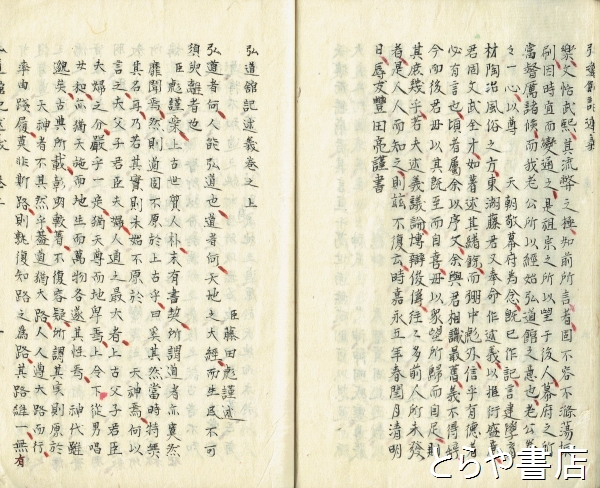 樂文恬武熙其流弊之極如前所言者固不容不滌蕩
刷因時宜而變通之是祖宗之所以望于後人幕府之所
當督厲諸侯而我老公所以經始弘道館之意也老公
々一心以尊 天朝敬幕府為念既已作記言建學育
材陶冶風俗之方東湖藤君又奉命作述義以推衍盛
君固文武全才如著述其緒餘而弸中彪外信乎有德者
必有言也頃者屬余以序文余與君相識最舊義不得辞
今而後君毋以其既至而自喜毋以衆望所歸而自足則
其庶幾乎若夫述義議論博辯俊偉往々多前人所未發
者是人人而知之則玆不復云時嘉永五年春閏月清明
日辱友豐田亮謹書
弘道館記述義卷之上
臣藤田彪謹述
弘道者何人能弘道也道者何天地之大經而生民不可
須臾離者也
臣彪謹案上古世質人朴未有書契所謂道者亦寞然
靡聞焉然則道固不原於上古乎曰奚其然當時特無
其名耳乃若其實則未始不原於 天神焉何以
言之夫父子君臣夫婦人道之最大者上古父子君臣
夫婦之分嚴乎一矣猶天尊而地卑焉上令下從男唱
女和猶天施而地生而萬物各遂其性焉 神代雖
邈矣古典所載彰明較著不復容疑所謂其實則原於
天神者不其然乎蓋道猶大路人人遵大路而行
率由踐履莫非斯路則孰復知路之為路其路雖一無有
とらや書店